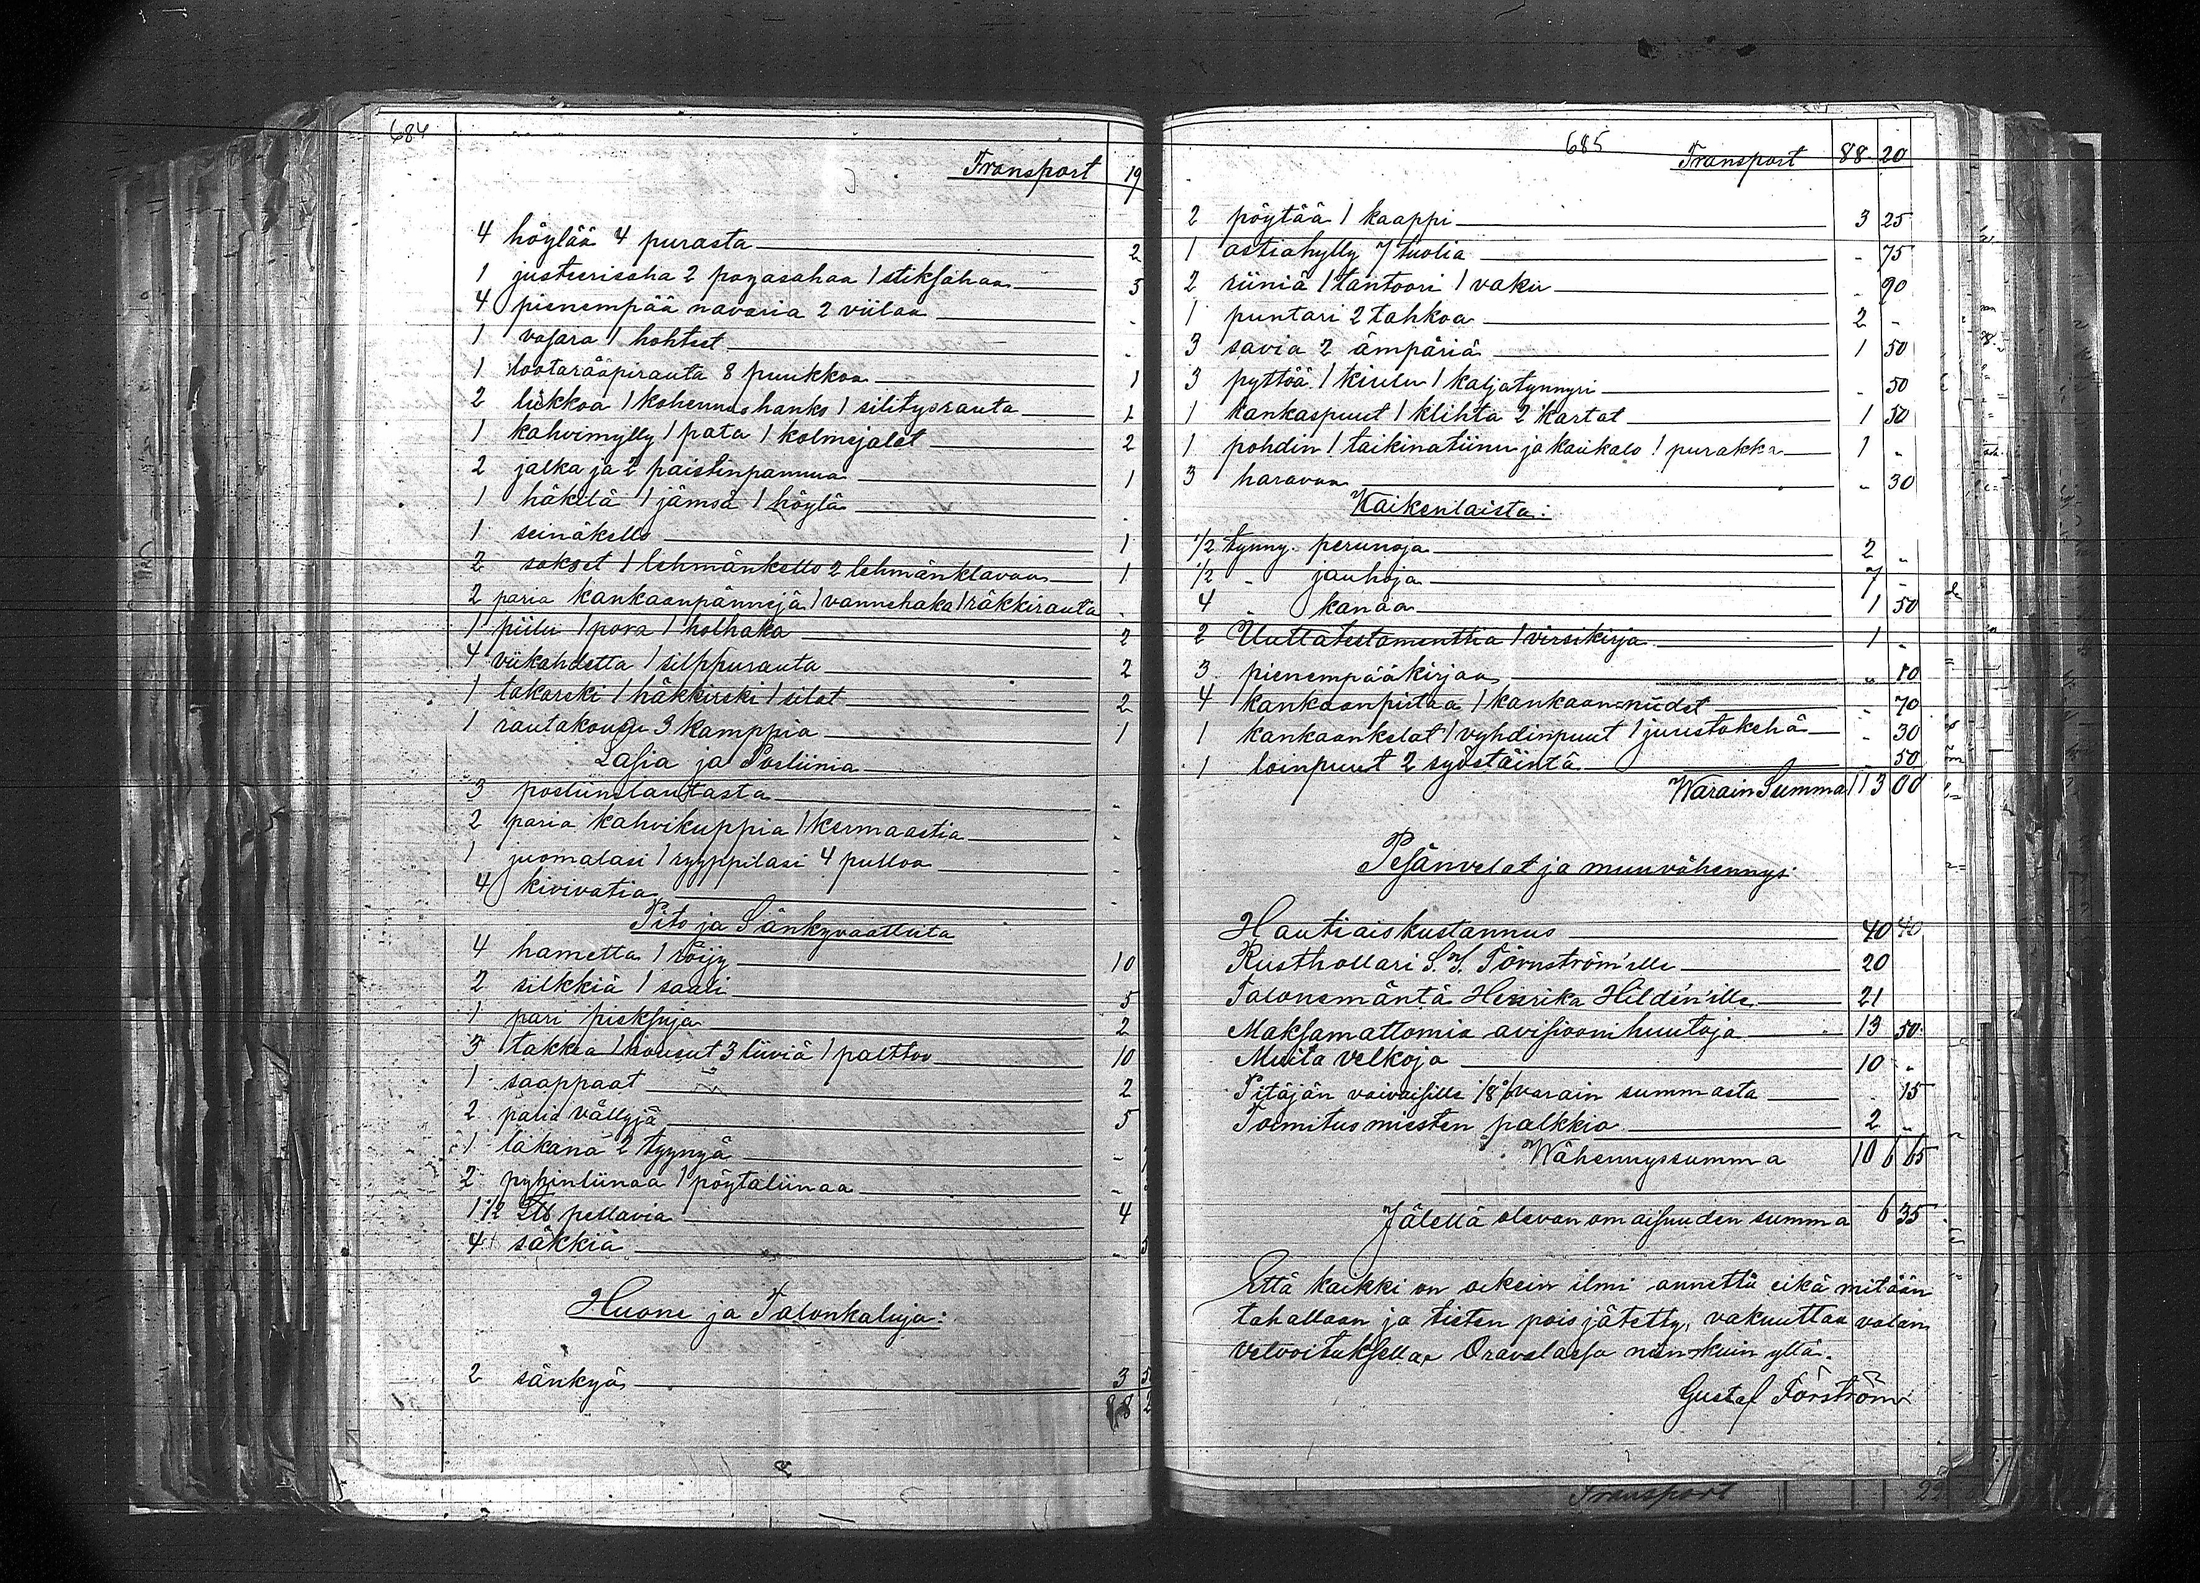 684
Transport 19
4 höylää 4 purasta 2
1 justeerisaha 2 pogasahaa 1 stiksahaa 3
4 pienempää navaria 2 viilaa -
1 vasara 1 hohteet -
1 lootarååpirauta 8 puukkoa 1
2 liikkoa 1 kohennushanko 1 silitysrauta 1
1 kahvimylly 1 pata 1 kolmejalat 2
2 jalka ja 2 paistinpannua 1
1 häkilä 1 jämsä 1 höylä
1 seinäkello 1
2 sakset 1 lehmänkello 2 lehmänklavaa 1
2 paria kankaanpännejä 1 vannehaka 1 räkkirauta -
1 piilu 1 pora 1 holhaka 2
4 viikahdetta 1 silppurauta 2
1 takareki 1 häkkireki 1 silat 2
1 rautakouga 3 kamppia 1
Lasia ja Posliinia
3 posliinilautasta -
2 paria kahvikuppia 1 kermaastia -
1 juomalasi 1 ryyppilasi 4 pulloa -
4 kivivatia -
Pito ja Sänkyvaatteita
4 hametta 1 röijy 10
2 silkkiä 1 saali 5
1 pari pieksuja 2
3 takkia 1 housut 3 liiviä 1 palttoo 10
1 saappaat 2
2 paria vällyjä 5
1 lakana 2 tyynyä -
2 pyhinliinaa 1 pöytaliinaa -
1 1/2 ℔ pellavia 4
4 säkkiä -
Huone ja Talonkaluja:
2 sänkyä 3 5
88 2
685
Transport 88 20
2 pöytää 1 kaappi 3 25
1 astiahylly 7 tuolia - 75
2 riiniä 1 tantoori 1 vaku - 90
1 puntari 2 tahkoa 2 -
3 savia 2 ämpäriä 1 50
3 pyttöä 1 kiulu 1 kaljatynnyri - 50
1 kankaspuut 1 klihta 2 kartat 1 50
1 pohdin 1 taikinatiinu ja kaukalo 1 purakka 1 "
3 haravaa " 30
Kaikenlaista:
1/2 tynny. perunoja 2 "
1/2 " jauhoja 7 "
4 " kanaa 1 50
2 Uuttatestamenttia 1 virsikirja 1 "
3 pienempää kirjaa " 10
4 kankaanpiitaa 1 kankaan=niidet " 70
1 kankaankelat 1 vyhdinpuut 1 juustokehä - 30
1 loinpuut 2 syöstäintä - 50
Warain Summa 113 00
Pesänvelat ja muu vähennys:
Hautiaiskustannus 40 40
Rusthollari S. J. Törnström'ille 20
Talonemäntä Henrika Hildén'ille 21
Maksamattomia avisioonihuutoja 13 50
Muita velkoja 10 "
Pitäjän vaivaisille 1/8 % varain summasta - 15
Toimitusmiesten palkkio 2 "
Wähennyssumma 106 65
Jälellä olevan omaisuuden summa 6 35
Että kaikki on oikein ilmi annettu eikä mitään
tahallaan ja tieten pois jätetty, vakuuttaa valan
velvoituksella Oravalassa niinkuin yllä.
Gustaf Törström
Transport 22